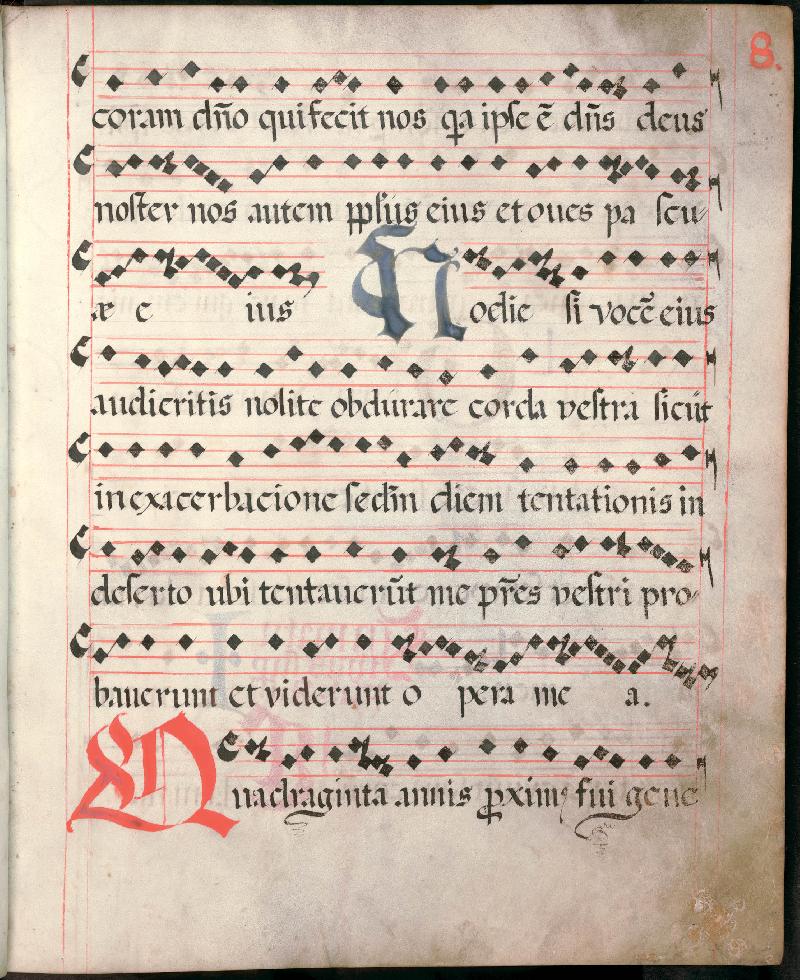 8.
coram dño qui fecit nos qa ipse ē dñs deus
noster nos autem ppłus eius et oues pa scu-
æ e ius Hodie si vocē eius
audieritis nolite obdurare corda vestra sicut
in exacerbacione sedm diem tentationis in
deserto ubi tentauerūt me pr̄es vestri pro-
bauerunt et viderunt o pera me a.
Quadraginta annis ꝓxim⁹ fui gene